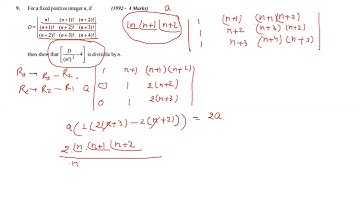 9. For a fixed positive integer n, if (1992 - 4 Marks)
D = | n! (n+1)! (n+2)! |
| (n+1)! (n+2)! (n+3)! |
| (n+2)! (n+3)! (n+4)! |
then show that [D/(n!)³ - 4] is divisible by n.
a
|n |n+1 |n+2
| 1 (n+1) (n+1)(n+2) |
| 1 n+2 (n+3)(n+2) |
| 1 n+3 (n+4)(n+3) |
R₃ → R₃ - R₂
R₂ → R₂ - R₁
a | 1 n+1 (n+1)(n+2) |
| 0 1 2(n+2) |
| 0 1 2(n+3) |
a(1(2(n+3) - 2(n+2))) = 2a
2 |n |n+1 |n+2
n